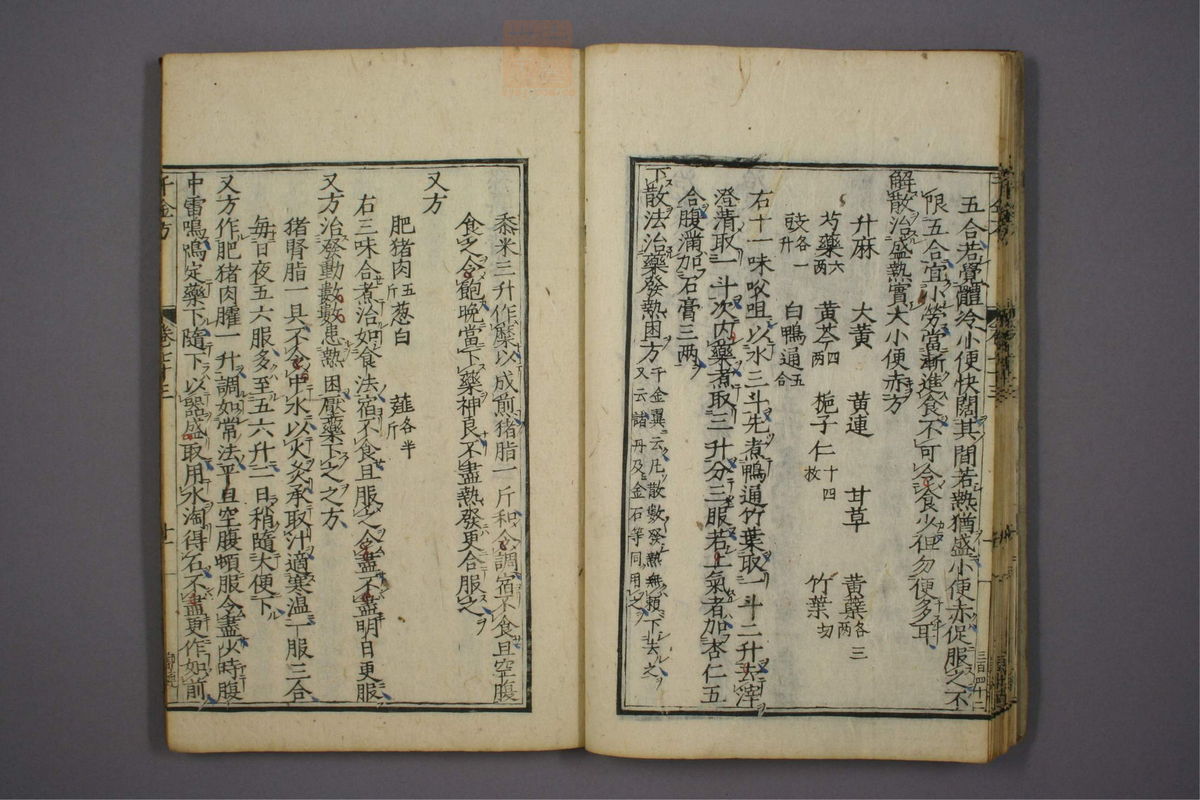 五合若覺體冷小便快闊其間若熱猶盛小便赤促服之不
限五合宜小勞當漸進食不可令食少但勿便多耳
解散治盛熱實大小便赤方
升麻 大黃 黃連 甘草 黃蘗各三兩
芍藥六兩 黃芩四兩 梔子仁十四枚 竹葉切
豉各一升 白鴨通五合
右十一味㕮咀以水三斗先煮鴨通竹葉取一斗二升去滓
澄清取一斗次內藥煮取三升分三服若上氣者加杏仁五
合腹滿加石膏三兩
下散法治藥發熱困方千金翼云凡散數發熱無賴下去之
又云諸丹及金石等同用之
黍米三升作糜以成煎猪脂一斤和令調宿不食旦空腹
食之令飽晚當下藥神良不盡熱發更合服之
又方
肥猪肉五斤 葱白 薤各半斤
右三味合煮治如食法宿不食旦服之令盡不盡明日更服
又方治發動數數患熱困壓藥下之之方
猪腎脂一具不令中水以火灸承取汁適寒温一服三合
每日夜五六服多至五六升二日稍隨大便下
又方作肥猪肉臛一升調如常法平旦空腹頓服令盡少時腹
中雷鳴鳴定藥下隨下以器盛取用水淘得石不盡更作如前